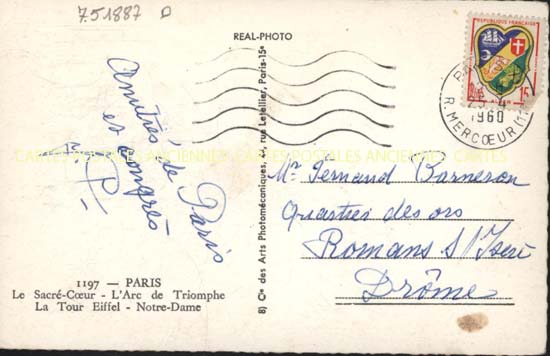 751887
REAL-PHOTO
Amitiés de Paris
et congrès
P.
1197 — PARIS
Le Sacré-Cœur - L'Arc de Triomphe
La Tour Eiffel - Notre-Dame
8) Cie des Arts Photomécaniques, rue Letellier, Paris-15e
RÉPUBLIQUE FRANÇAISE
15
PARIS
4
1960
R. MERCŒUR (11
Mr Fernand Barneron
Quartier des ors
Romans S/ Isère
Drôme
CARTES POSTALES ANCIENNES CARTES POSTALES ANCIENNES CARTES